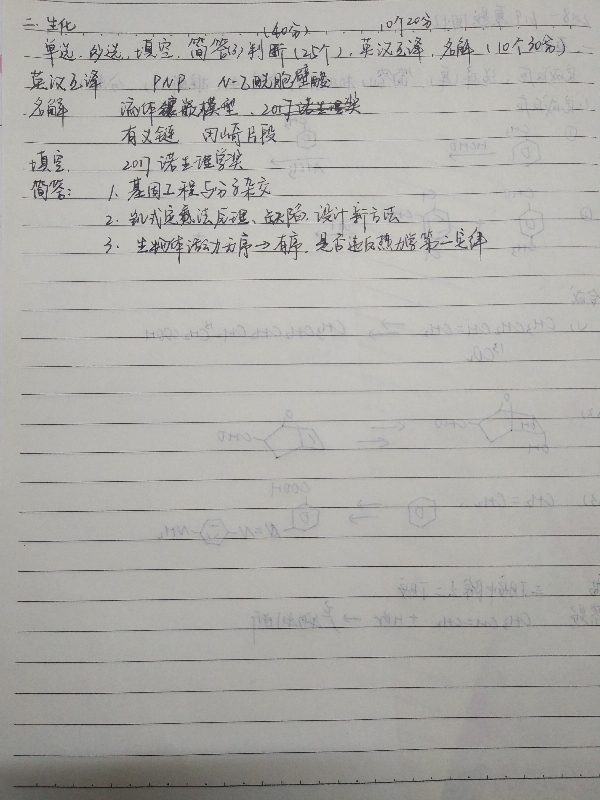 二.生化
(40分) 10个20分
单选、多选、填空、简答(3)判断(25个)、英汉互译、名解(10个30分)
英汉互译 PNP N-乙酰胞壁酸
名解 流体镶嵌模型、2017诺生理奖
有义链 冈崎片段
填空 2017诺生理学奖
简答: 1.基因工程与分子杂交
2.凯式定氮法原理、缺陷、设计新方法
3.生物体活动力无序→有序,是否违反热力学第二定律